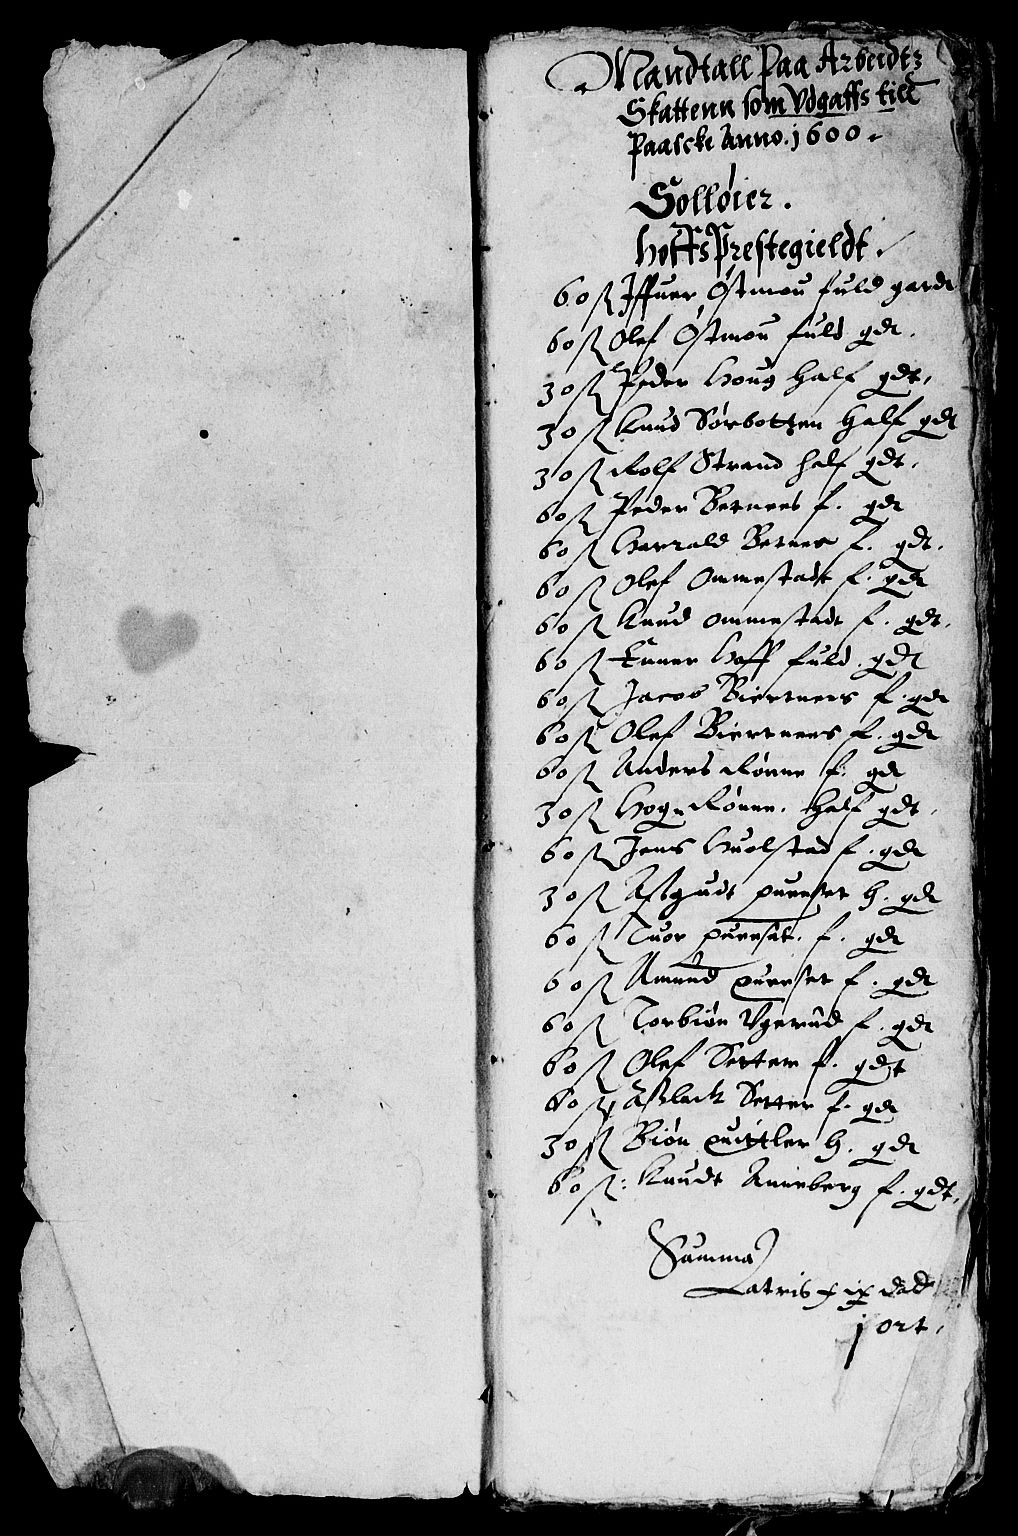 Mandtall Paa Arbeidtz
Skattenn som Vdgaffs till
Paascke Anno. 1600.
Solløier.
Hoffs Prestegieldt.
60 ß Iffuer Østmou fuld gardt
60 ß Olef Østmou fuld gdt.
30 ß Peder Houg half gdt,
30 ß Knud Sørbotten half gdt
30 ß Rolf Strand half gdt,
60 ß Peder Bernees f. gdt
60 ß Harrald Bernes f. gdt.
60 ß Olef Ommestadt f. gdt
60 ß Knud Ommestadt f. gdt.
60 ß Enner Hoff fuld. gdt
60 ß Jacob Biertnees f. gdt
60 ß Olef Biertnees f. gdt
60 ß Anders Rønne f. gdt
30 ß Hogn Rønne. half gdt,
60 ß Jens Huolstad f. gdt
30 ß Assgudt purrset h. gdt
60 ß Tuor purrset. f. gdt
60 ß Amund purrset f. gdt
60 ß Torbiøn Vgerud f. gdt
60 ß Olef Setter f. gdt
60 ß Asslack Setter f. gdt
30 ß Biøn h. gdt
60 ß: Knudt Anneberg f. gdt,
Summa
Latris ix dal
j ort,